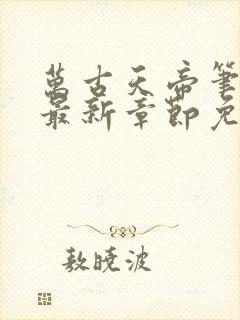 萬古天帝筆
最新章節免
敖曉波